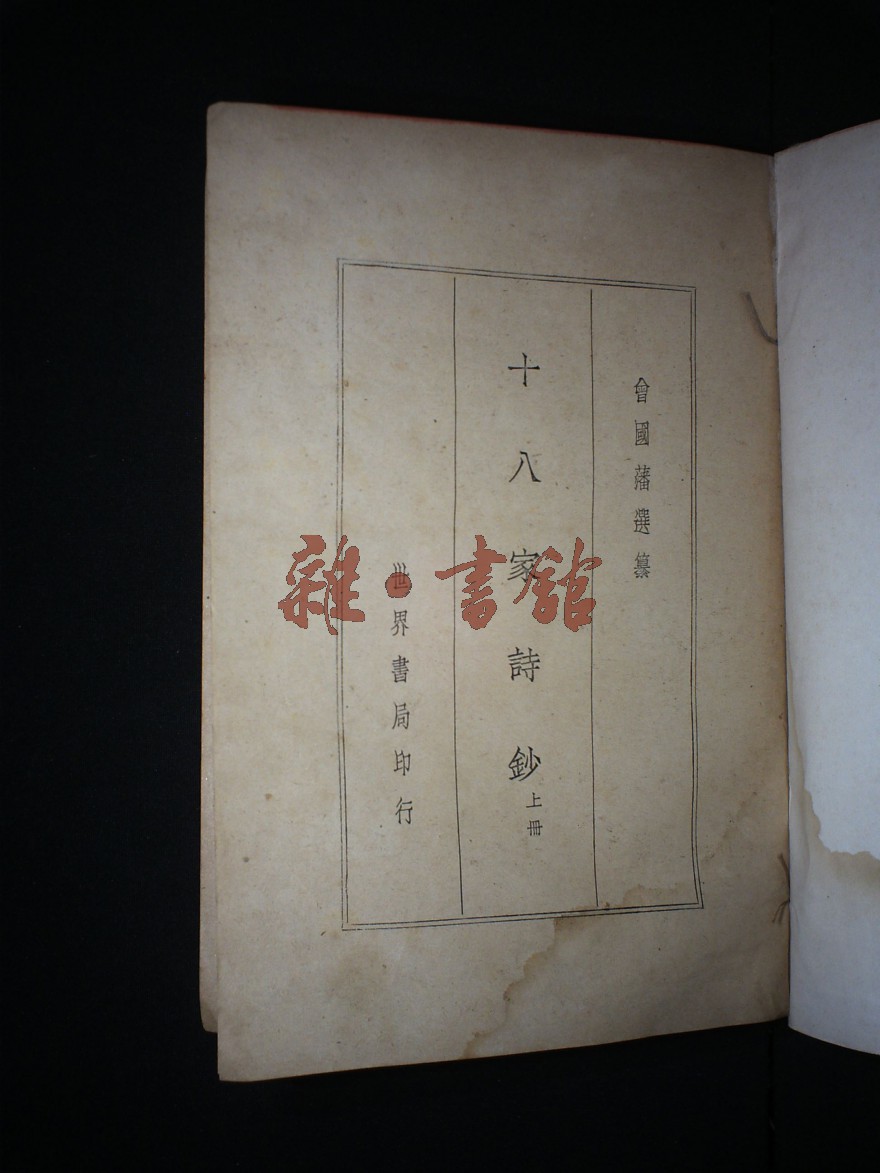 曾國藩選纂
十八家詩鈔上冊
世界書局印行
雜·書館